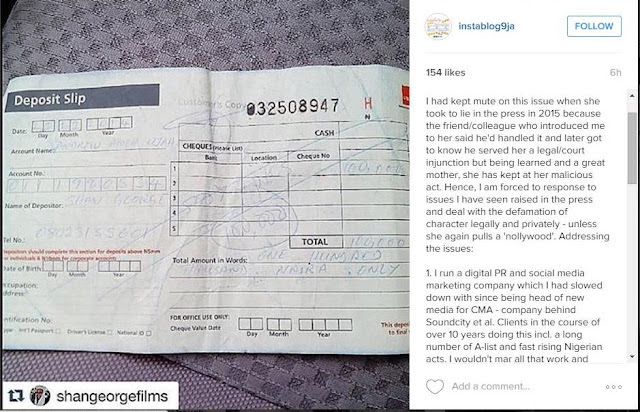 instablog9ja
FOLLOW
154 likes
6h
I had kept mute on this issue when she
took to lie in the press in 2015 because
the friend/colleague who introduced me
to her said he'd handled it and later got
to know he served her a legal/court
injunction but being learned and a great
mother, she has kept at her malicious
act. Hence, I am forced to response to
issues I have seen raised in the press
and deal with the defamation of
character legally and privately - unless
she again pulls a 'nollywood'. Addressing
the issues:
1. I run a digital PR and social media
marketing company which I had slowed
down with since being head of new
media for CMA - company behind
Soundcity et al. Clients in the course of
over 10 years doing this incl. a long
number of A-list and fast rising Nigerian
acts. I wouldn't mar all that work and
Add a comment...
Deposit Slip
Customer's Copy
032508947
H
N
Date:
Day Month Year
Account Name:
Account No.:
Name of Depositor:
SHAN GEORGE
Tel No.:
Depositors should complete this section for deposits above N5mm
Date of Birth:
Day Month Year
CASH
CHEQUES (Please List)
Bank Location Cheque No
1
2
3
4
5
100,000
TOTAL
Total Amount in Words:
ONE HUNDRED
THOUSAND NAIRA ONLY
FOR OFFICE USE ONLY:
Cheque Value Date
Day Month Year
This depo
to final
Int'l Passport Driver's License National ID
shangeorgefilms